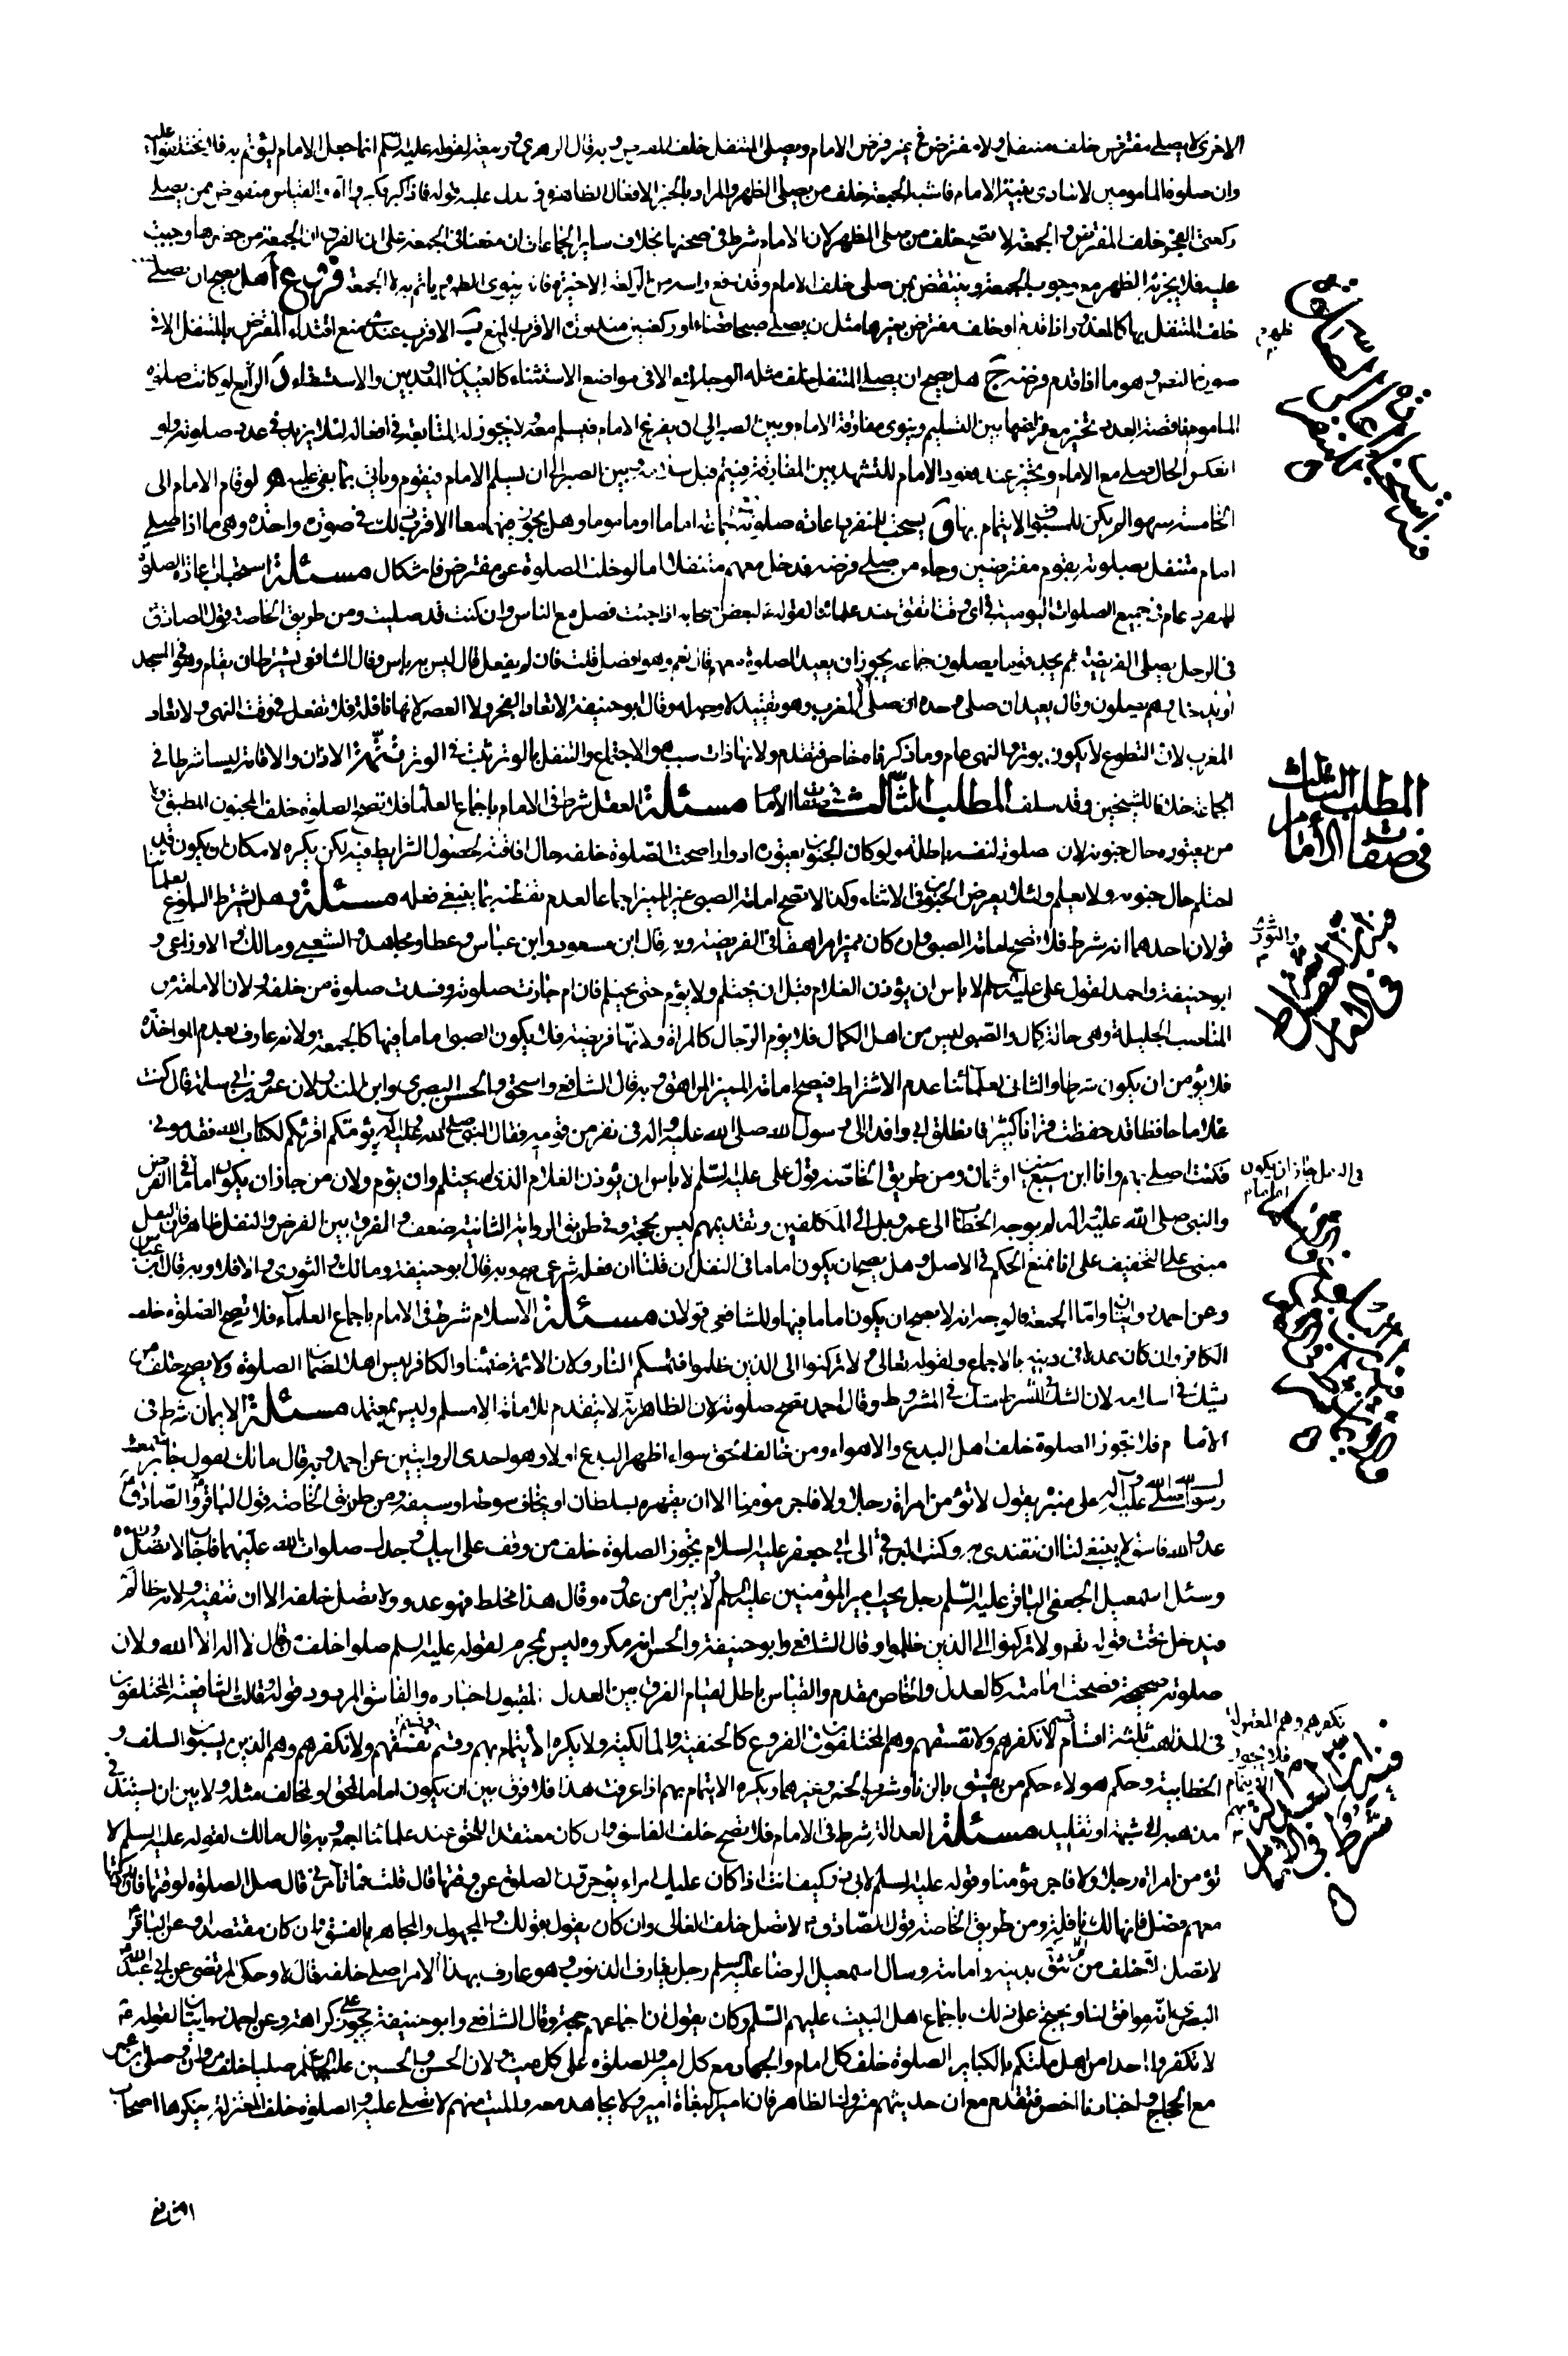 الاخرى لا يصلي مفترض خلف متنفل ولا مفترض في غير فرض الامام ويصلي المتنفل خلف المفترض وبه قال الزهري وربيعة لقوله عليه السلم انما جعل الامام ليؤتم به فلا تختلفوا عليه
وان صلوة المامومين لا تتادى بنية الامام فاشبه الجمعة خلف من يصلي الظهر والمراد بالخبر الافعال الظاهرة يدل عليه قوله فاذا كبر فكبروا والقياس منقوض بمن يصلي
ركعتي الفجر خلف المفترض والجمعة لا تصح خلف من صلى الظهر لان الامام شرط في صحتها بخلاف ساير الجماعات
عليه فلا يجزئه الظهر مع وجوب الجمعة وينتقض بمن صلى خلف الامام وقد رفع راسه من الركعة الاخيرة فانه ينوي الظهر ياتم به لا الجمعة فروع آ هل يصح ان يصلي
خلف المتنفل بها كالمعذور اذا قدم او خلف مفترض بغيرها مثل ان يصلي صبحا قضاء او ركعتين منذورة الاقرب المنع ب الاقرب عندي منع اقتداء المفترض بالمتنفل الا في
صورة النص وهو ما اذا قدم فرضه ج هل يصح ان يصلي المتنفل خلف مثله الوجه المنع الا في مواضع الاستثناء كالعيدين المندوبين والاستسقاء د الرابع لو كانت صلوة
الماموم ناقصة العدد تخير مع فراغها بين التسليم وينوي مفارقة الامام وبين الصبر الى ان يفرغ الامام فيسلم معه ولا يجوز له المتابعة في افعاله لئلا يزيد في عدد صلوته ولو
انعكس الحال صلى مع الامام وتخير عند قعود الامام للتشهد بين المفارقة فيتم قبل سلامه وبين الصبر الى ان يسلم الامام فيقوم وياتي بما بقي عليه هـ لو قام الامام الى
الخامسة سهوا لم يكن للمسبوق الايتمام بها و يستحب للمنفرد اعادة صلوته مع الجماعة اماما او ماموما وهل يجوز فيهما معا الاقرب ذلك في صورة واحدة وهي ما اذا صلى
امام متنفل بصلوته بقوم مفترضين وجاء من صلى فرضه فدخل معهم متنفلا اما لو خلت الصلوة عن مفترض فاشكال مسئلة استحباب اعادة الصلوة
للمنفرد عام في جميع الصلوات اليومية في اي وقت اتفق عند علمائنا لقوله لبعض اصحابه اذا جئت فصل مع الناس وان كنت قد صليت ومن طريق الخاصة قول الصادق
في الرجل يصلي الفريضة ثم يجد قوما يصلون جماعة يجوز ان يعيد الصلوة معهم قال نعم وهو افضل قلت فان لم يفعل قال ليس به باس وقال الشافعي يشترط ان يقام وهو في المسجد
او يدخل وهم يصلون وقال يعيد ان صلى وحده الا المغرب وهو تقييد لا وجه له وقال ابو حنيفة لا تعاد الفجر ولا العصر لانها نافلة فلا تفعل في وقت النهي ولا تعاد
المغرب لان التطوع لا يكون بوتر والنهي عام وما ذكرناه خاص فتقدم ولانها ذات سبب هو الاجتماع والتنفل بالوتر يثبت في الوتر تتمة الاذان والاقامة ليسا شرطا في
الجماعة خلافا للشيخين وقد سلف المطلب الثالث في صفات الامام مسئلة العقل شرط في الامام باجماع العلماء فلا تصح الصلوة خلف المجنون المطبق ولا
من يعتوره حال جنونه لان صلوته لنفسه باطلة ولو كان الجنون يعتوره ادوارا صحت الصلوة خلفه حال افاقته لحصول الشرايط فيه لكن يكره لامكان ان يكون قد
احتلم حال جنونه ولا يعلم ولئلا يعرض الجنون في الاثناء وكذا لا تصح امامة الصبي غير المميز اجماعا لعدم تفطنه بما ينبغي فعله مسئلة وهل يشترط البلوغ لعلمائنا
قولان احدهما انه شرط فلا تصح امامة الصبي وان كان مميزا مراهقا في الفريضة وبه قال ابن مسعود وابن عباس وعطا ومجاهد والشعبي ومالك والاوزاعي و
ابو حنيفة واحمد لقول علي عليه السلم لا باس ان يؤذن الغلام قبل ان يحتلم ولا يؤم حتى يحتلم فان ام جازت صلوته وفسدت صلوة من خلفه ولان الامامة من
المناصب الجليلة وهي حالة كمال والصبي ليس من اهل الكمال فلا يؤم الرجال كالمراة ولانها فريضة فلا يكون الصبي اماما فيها كالجمعة ولانه عارف بعدم المواخذة
فلا يؤمن ان يكون والثاني لعلمائنا عدم الاشتراط فيصح امامة المميز المراهق وبه قال الشافعي واسحق والحسن البصري وابن المنذر لان عمرو بن ابي سلمة قال كنت
غلاما حافظا قد حفظت قرانا كثيرا فانطلق ابي وافدا الى رسول الله صلى الله عليه واله في نفر من قومه فقال النبي صلى الله عليه واله يؤمكم اقرئكم لكتاب الله فقدموني
فكنت اصلي بهم وانا ابن سبع سنين او ثمان ومن طريق الخاصة قول علي عليه السلم لا باس ان يؤذن الغلام الذي لم يحتلم وان يؤم ولان من جاز ان يكون اماما في الفرض
والنبي صلى الله عليه واله لم يوجه الخطاب الى عمرو بل الى المكلفين وتقديمهم ليس بحجة وفي طريق الرواية الثانية ضعف والفرق بين الفرض والنفل ظاهر فان النفل
مبني على التخفيف على انا نمنع الحكم في الاصل وهل يصح ان يكون اماما في النفل ان قلنا ان فعله شرعي صح وبه قال ابو حنيفة ومالك والثوري والا فلا وبه قال ابن عباس
وعن احمد روايتان واما الجمعة فالوجه انه لا يصح ان يكون اماما فيها وللشافعي قولان مسئلة الاسلام شرط في الامام باجماع العلماء فلا تصح الصلوة خلف
الكافر وان كان عدلا في دينه بالاجماع ولقوله تعالى ولا تركنوا الى الذين ظلموا فتمسكم النار ولان الائمة ضمناء والكافر ليس اهلا لضمان الصلوة ولا يصح خلف من
يشك في اسلامه لان الشك في الشرط شك في المشروط وقال احمد يصح صلوته لان الظاهر انه لا يتقدم للامامة الا مسلم وليس بمعتمد مسئلة الايمان شرط في
الامام فلا تجوز الصلوة خلف اهل البدع والاهواء ومن خالف الحق سواء اظهر البدع او لا وهو احدى الروايتين عن احمد وبه قال مالك لقول جابر سمعت
رسول الله صلى الله عليه وآله على منبره يقول لا تؤمن امراة رجلا ولا فاجر مؤمنا الا ان يقهره بسلطان او يخاف سوطه او سيفه ومن طريق الخاصة قول الباقر والصادق
عدو الله فاسق لا ينبغي لنا ان نقتدي به وكتب البرقي الى ابي جعفر عليه السلام يجوز الصلوة خلف من وقف على ابيك وجدك صلوات الله عليهما فاجاب لا تصل وراءه
وسئل اسمعيل الجعفي الباقر عليه السلم رجل يحب امير المؤمنين عليه السلم ولا يبرا من عدوه وقال هذا مخلط فهو عدو ولا تصل خلفه الا ان تتقيه ولانه ظالم
فيدخل تحت قوله تعم ولا تركنوا الى الذين ظلموا وقال الشافعي وابو حنيفة والحسن انه مكروه ليس بمحرم لقوله عليه السلم صلوا خلف من قال لا اله الا الله ولان
صلوته صحيحة فصحت امامته كالعدل والخاص مقدم والقياس باطل لقيام الفرق بين العدل المقبول اخباره والفاسق المردود قوله وقالت الشافعية المختلفون
في المذاهب ثلثة اقسام قسم لا نكفرهم ولا نفسقهم وهم المختلفون في الفروع كالحنفية والمالكية ولا يكره الايتمام بهم وقسم نفسقهم ولا نكفرهم وهم الذين يسبون السلف و
الخطابية وحكم هولاء حكم من يفسق بالزنا وشرب الخمر وغيرهما ويكره الايتمام بهم اذا عرفت هذا فلا فرق بين ان يكون امام المحق او المخالف مثله ولا بين ان يستند في
مذهبه الى شبهة او تقليد مسئلة العدالة شرط في الامام فلا تصح خلف الفاسق وان كان معتقدا للحق عند علمائنا اجمع وبه قال مالك لقوله عليه السلم لا
تؤمن امراة رجلا ولا فاجر مؤمنا وقوله عليه السلم لابي ذر كيف انت اذا كان عليك امراء يؤخرون الصلوة عن وقتها قال قلت فما تامرني قال صل الصلوة لوقتها فان ادركتها
معهم فصل فانها لك نافلة ومن طريق الخاصة قول الصادق لا تصل خلف الغالي وان كان يقول بقولك والمجهول والمجاهر بالفسق وان كان مقتصدا وعن الباقر
لا تصل الا خلف من تثق بدينه وامانته وسال اسمعيل الرضا عليه السلم رجل يقارف الذنوب وهو عارف بهذا الامر اصلي خلفه قال لا وحكى المرتضى عن ابي عبد الله
البصري انه موافق لنا ويحتج على ذلك باجماع اهل البيت عليهم السلم وكان يقول ان اجماعهم حجة وقال الشافعي وابو حنيفة يجوز على كراهة وعن احمد روايتان لقوله
لا تكفروا احدا من اهل ملتكم بالكباير الصلوة خلف كل امام والجهاد مع كل امير والصلوة على كل ميت ولان الحسن والحسين عليهما السلم صليا خلف مروان وصلى ابن عمر
مع الحجاج واخبارنا اخص فتقدم مع ان حديثهم متروك الظاهر فان امير البغاة امير ولا يجاهد معه والميت منهم لا يصلى عليه والصلوة خلف المعتزلة ينكرها اصحاب
الشافعي
ظهره
في استحباب اعادة الصلوة للمنفرد
المطلب الثالث
في صفات الامام
والثوري
في النفل جاز ان يكون
نكفرهم وهم المعتزلة
فلا يجوز
الايتمام
بهم